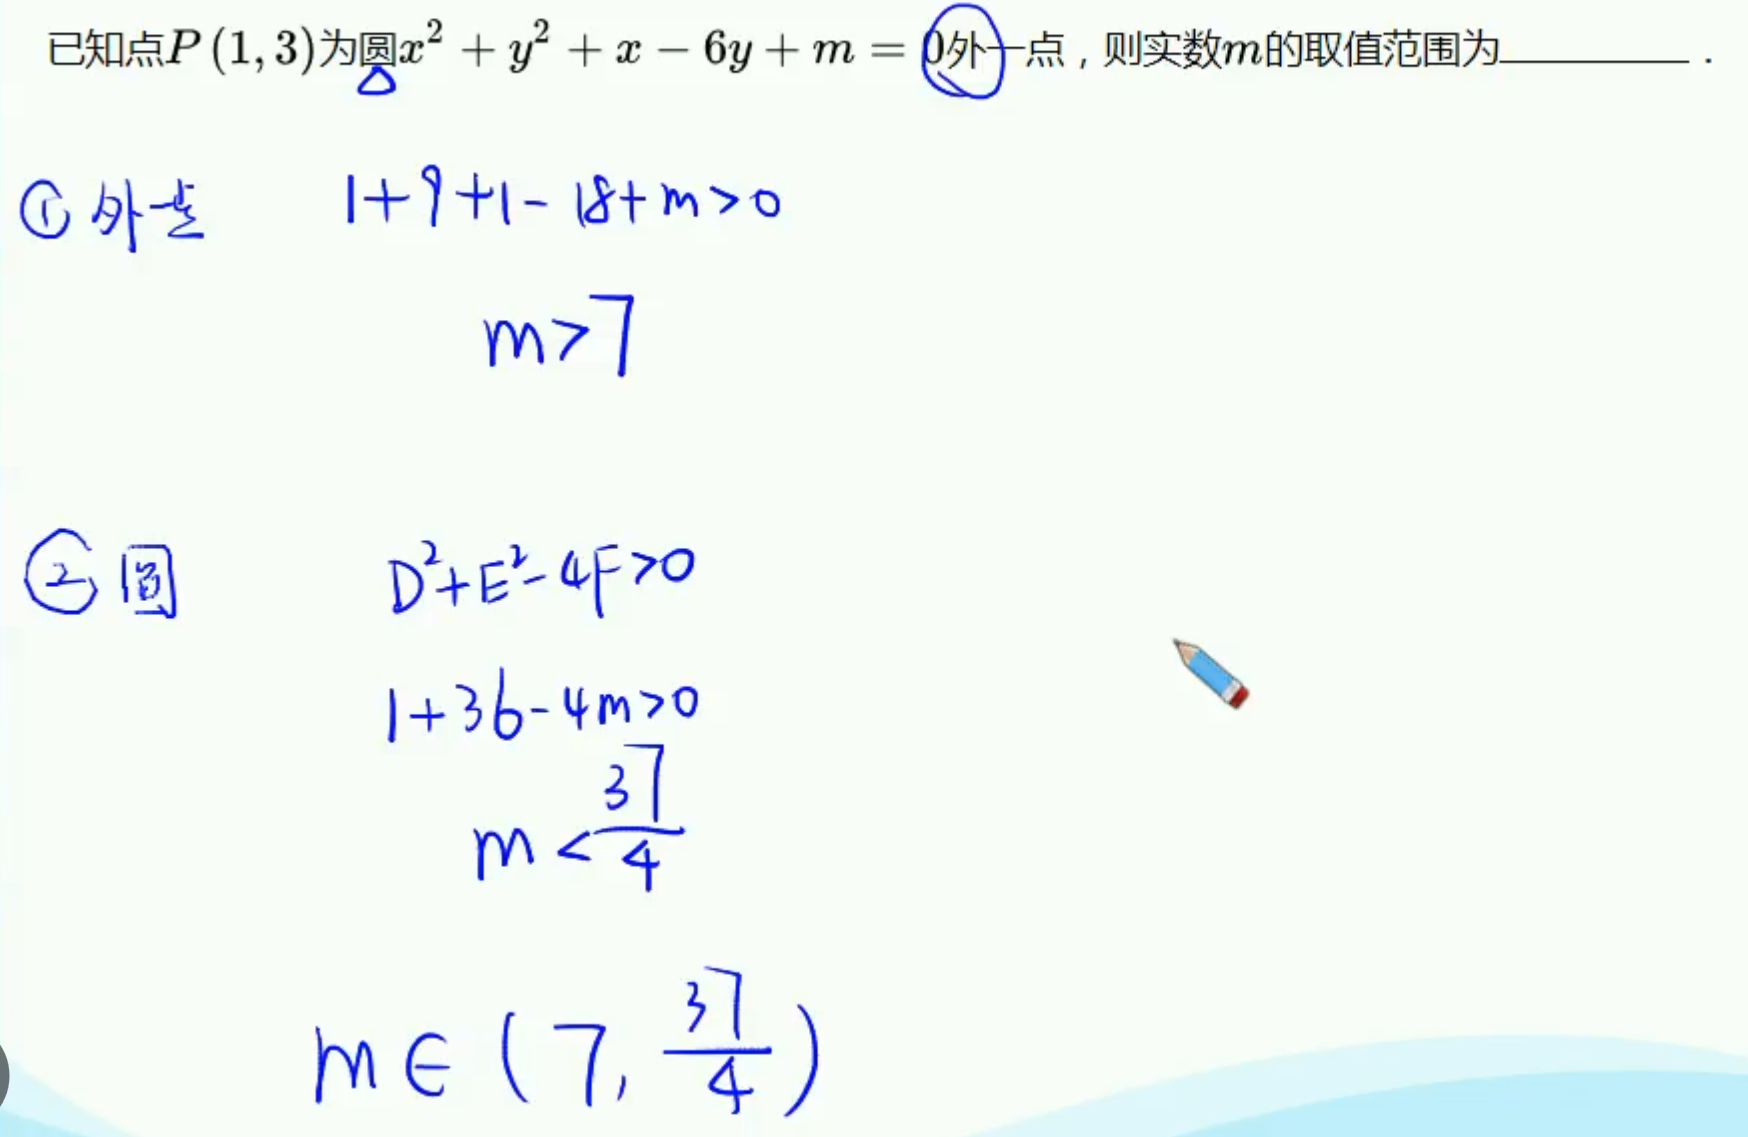 已知点P(1,3)为圆x² + y² + x − 6y + m = 0外一点，则实数m的取值范围为________．
① 外点 1+9+1-18+m>0
m>7
② 圆 D²+E²-4F>0
1+36-4m>0
m<37/4
m∈(7, 37/4)